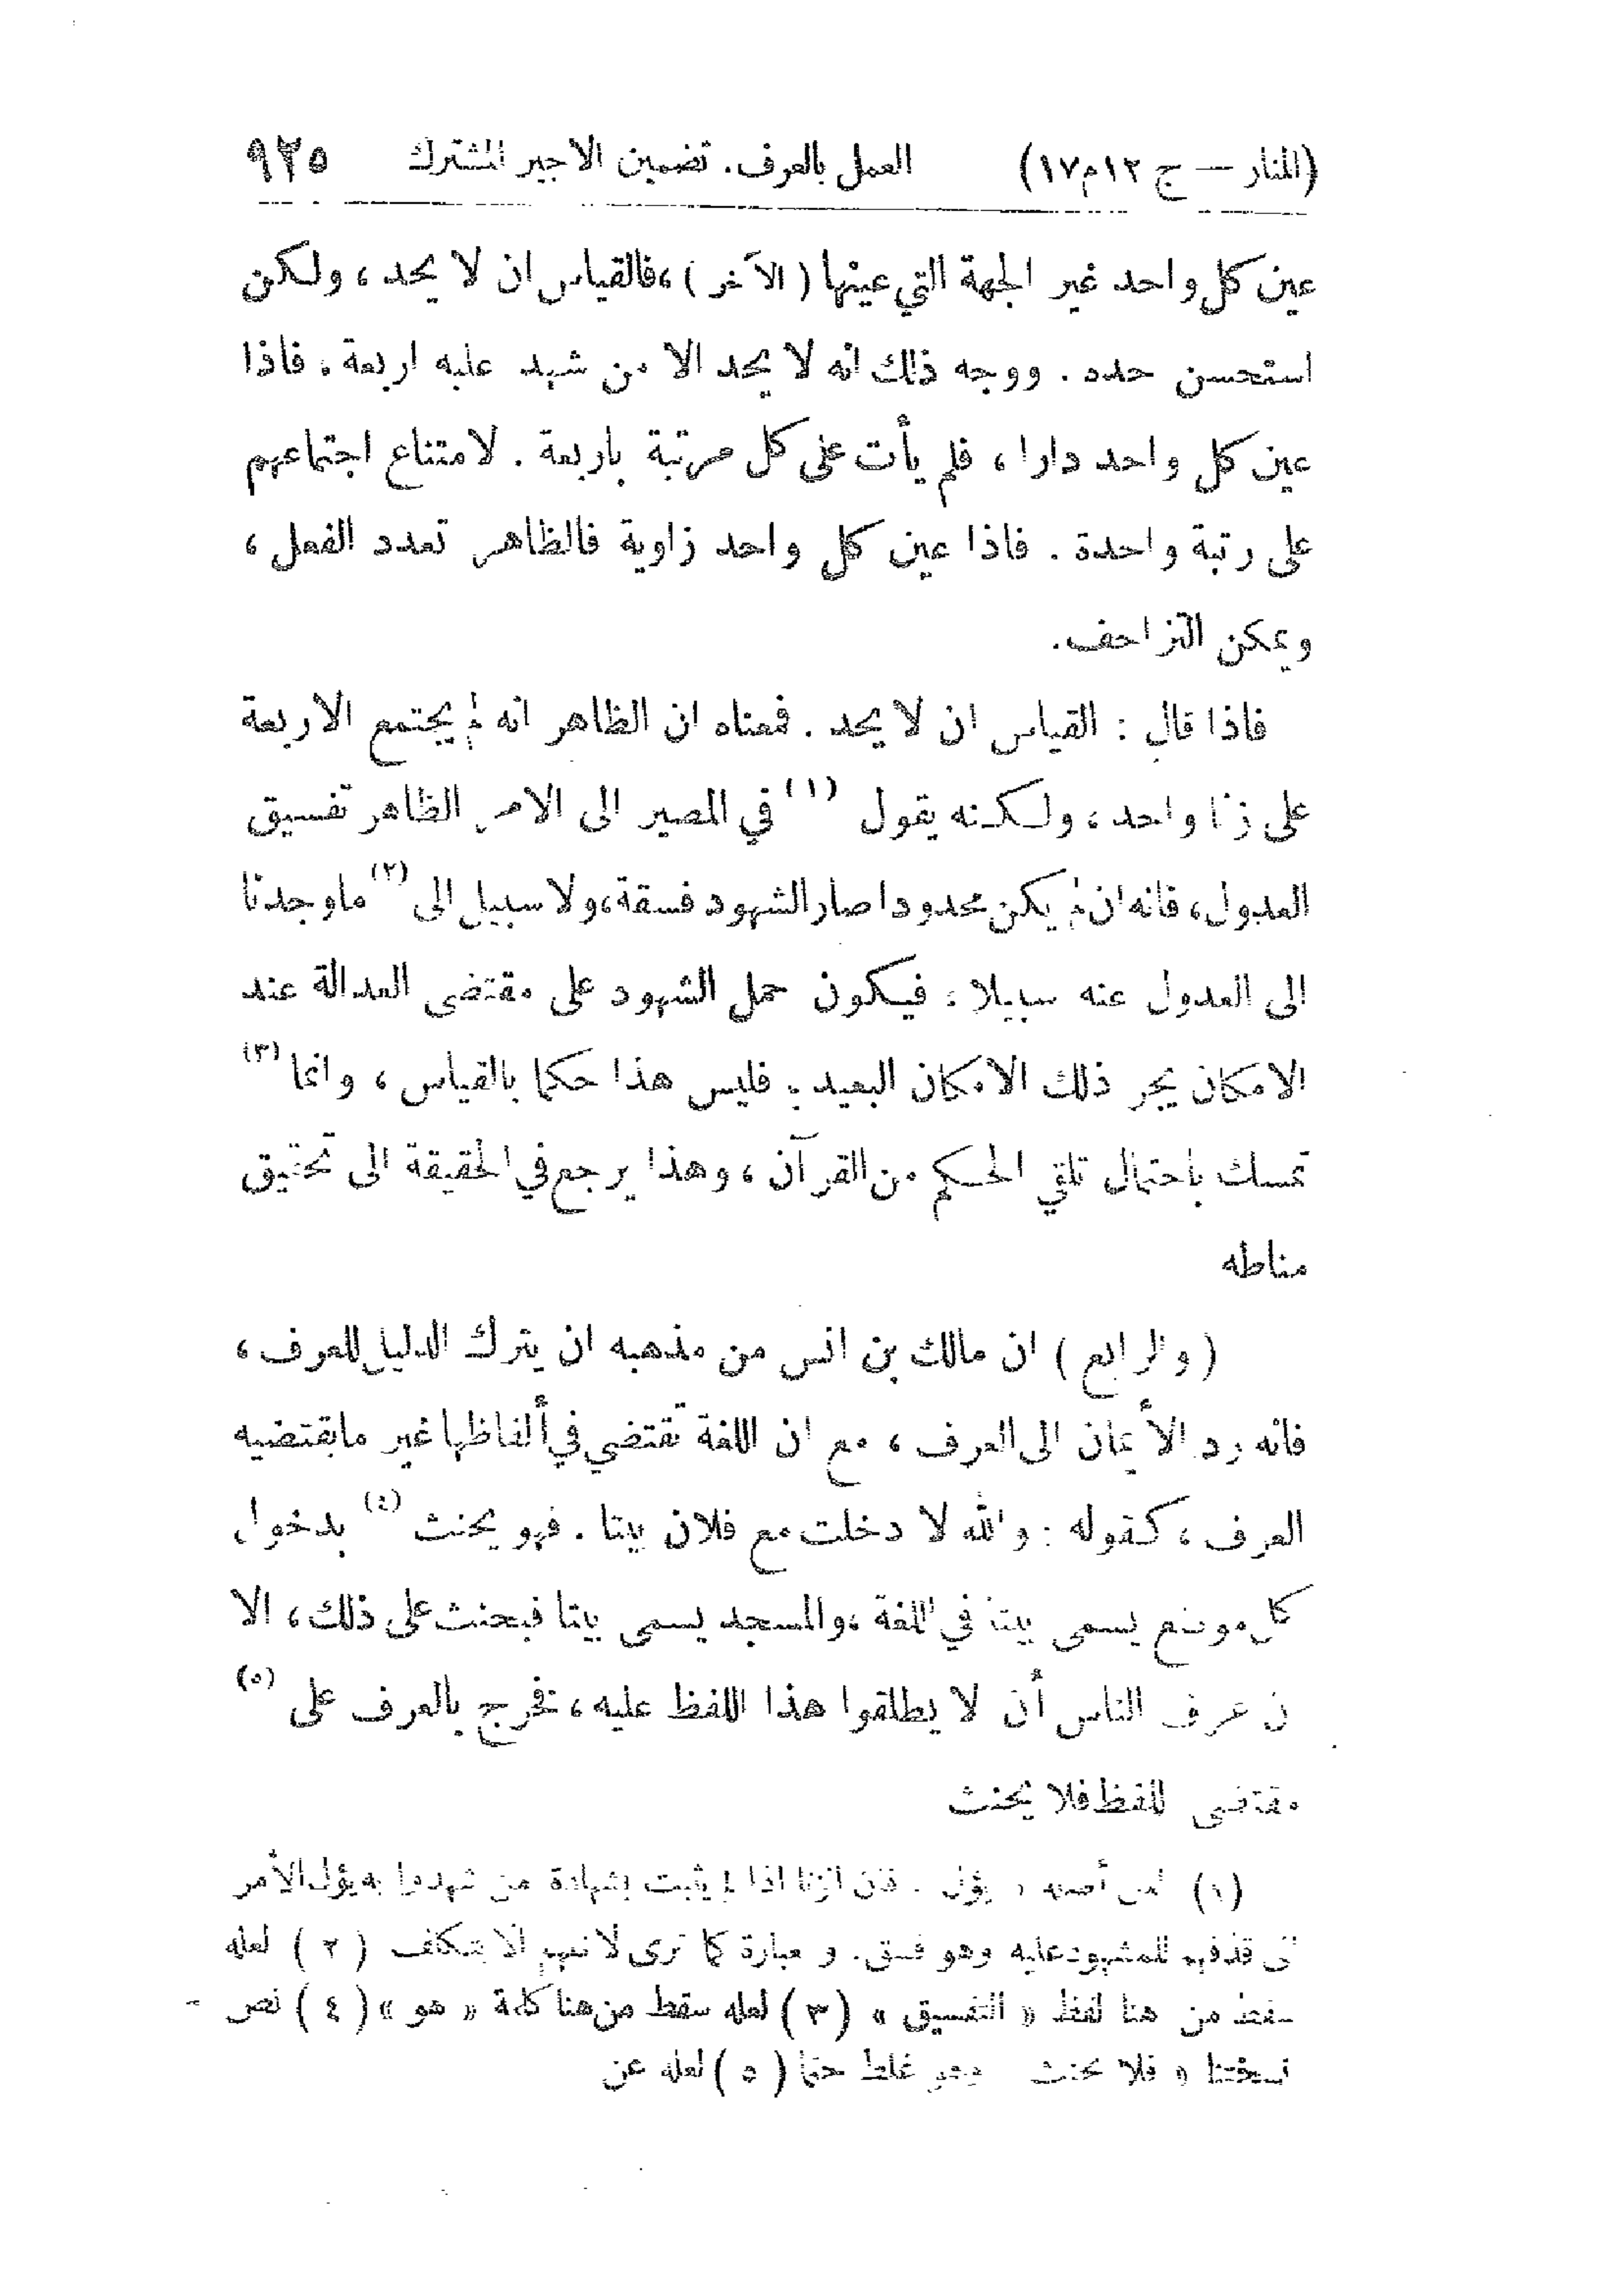 (المنار — ج ١٢م١٧) العمل بالعرف. تضمين الاجير المشترك ٩٢٥
عين كل واحد غير الجهة التي عينها ( الآخر ) ،فالقياس ان لا يحد ، ولكن
استحسن حده . ووجه ذلك انه لا يحد الا من شهد عليه اربعة . فاذا
عين كل واحد دارا ، فلم يأت على كل مرتبة باربعة . لامتناع اجتماعهم
على رتبة واحدة . فاذا عين كل واحد زاوية فالظاهر تعدد الفعل ،
ويمكن التزاحف.
فاذا قال : القياس ان لا يحد . فمعناه ان الظاهر انه لم يجتمع الاربعة
على زنا واحد ، ولكنه يقول (١) في المصير الى الامر الظاهر تفسيق
العدول، فانه ان لم يكن محدودا صار الشهود فسقة،ولا سبيل الى (٢) ماوجدنا
الى العدول عنه سبيلا . فيكون حمل الشهود على مقتضى العدالة عند
الامكان يجر ذلك الامكان البعيد . فليس هذا حكما بالقياس ، وانما (٣)
تمسك باحتمال تلقي الحكم من القرآن ، وهذا يرجع في الحقيقة الى تحقيق
مناطه
( والرابع ) ان مالك بن انس من مذهبه ان يترك الدليل للعرف ،
فانه رد الأيمان الى العرف ، مع ان اللغة تقتضي في ألفاظها غير مايقتضيه
العرف ، كقوله : والله لا دخلت مع فلان بيتا . فهو يحنث (٤) بدخول
كل موضع يسمى بيتا في اللغة ،والمسجد يسمى بيتا فيحنث على ذلك ، الا
ن عرف الناس أن لا يطلقوا هذا اللفظ عليه ، فخرج بالعرف على (٥)
مقتضى اللفظ فلا يحنث
(١) لعل أصله يؤل . فان الزنا اذا لم يثبت بشهادة من شهدوا به يؤل الأمر
الى قذفهم للمشهود عليه وهو فسق. و عبارة كما ترى لا تفهم الا بتكلف ( ٢ ) لعله
سقط من هنا لفظ « التفسيق » (٣) لعله سقط من هنا كلمة « هو » ( ٤ ) نص -
نسختنا و فلا يحنث وهو غلط حتما ( ٥ ) لعله عن